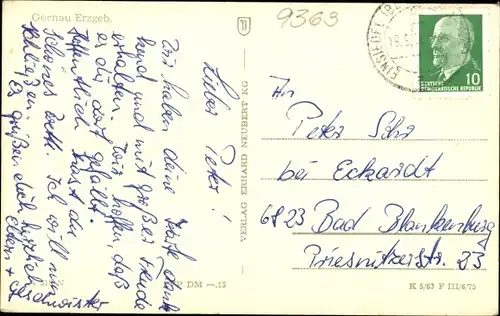 Gornau Erzgeb.
9363
Lieber Peter!
Wir haben deine Karte dank-
bend und mit großer Freude
erhalten. Wir hoffen, daß
es dir dort gefällt.
Hoffentlich hast du
schönes Wetter. Ich will nun
schließen. Es grüßen dich herzlich
Eltern + Geschwister
VERLAG ERHARD NEUBERT KG
DM —.15
EINSIEDEL
DEUTSCHE
DEMOKRATISCHE REPUBLIK
10
An
Peter
bei Eckardt
6823 Bad Blankenburg
Priesnitzerstr. 23
K 5/63 F III/6/75